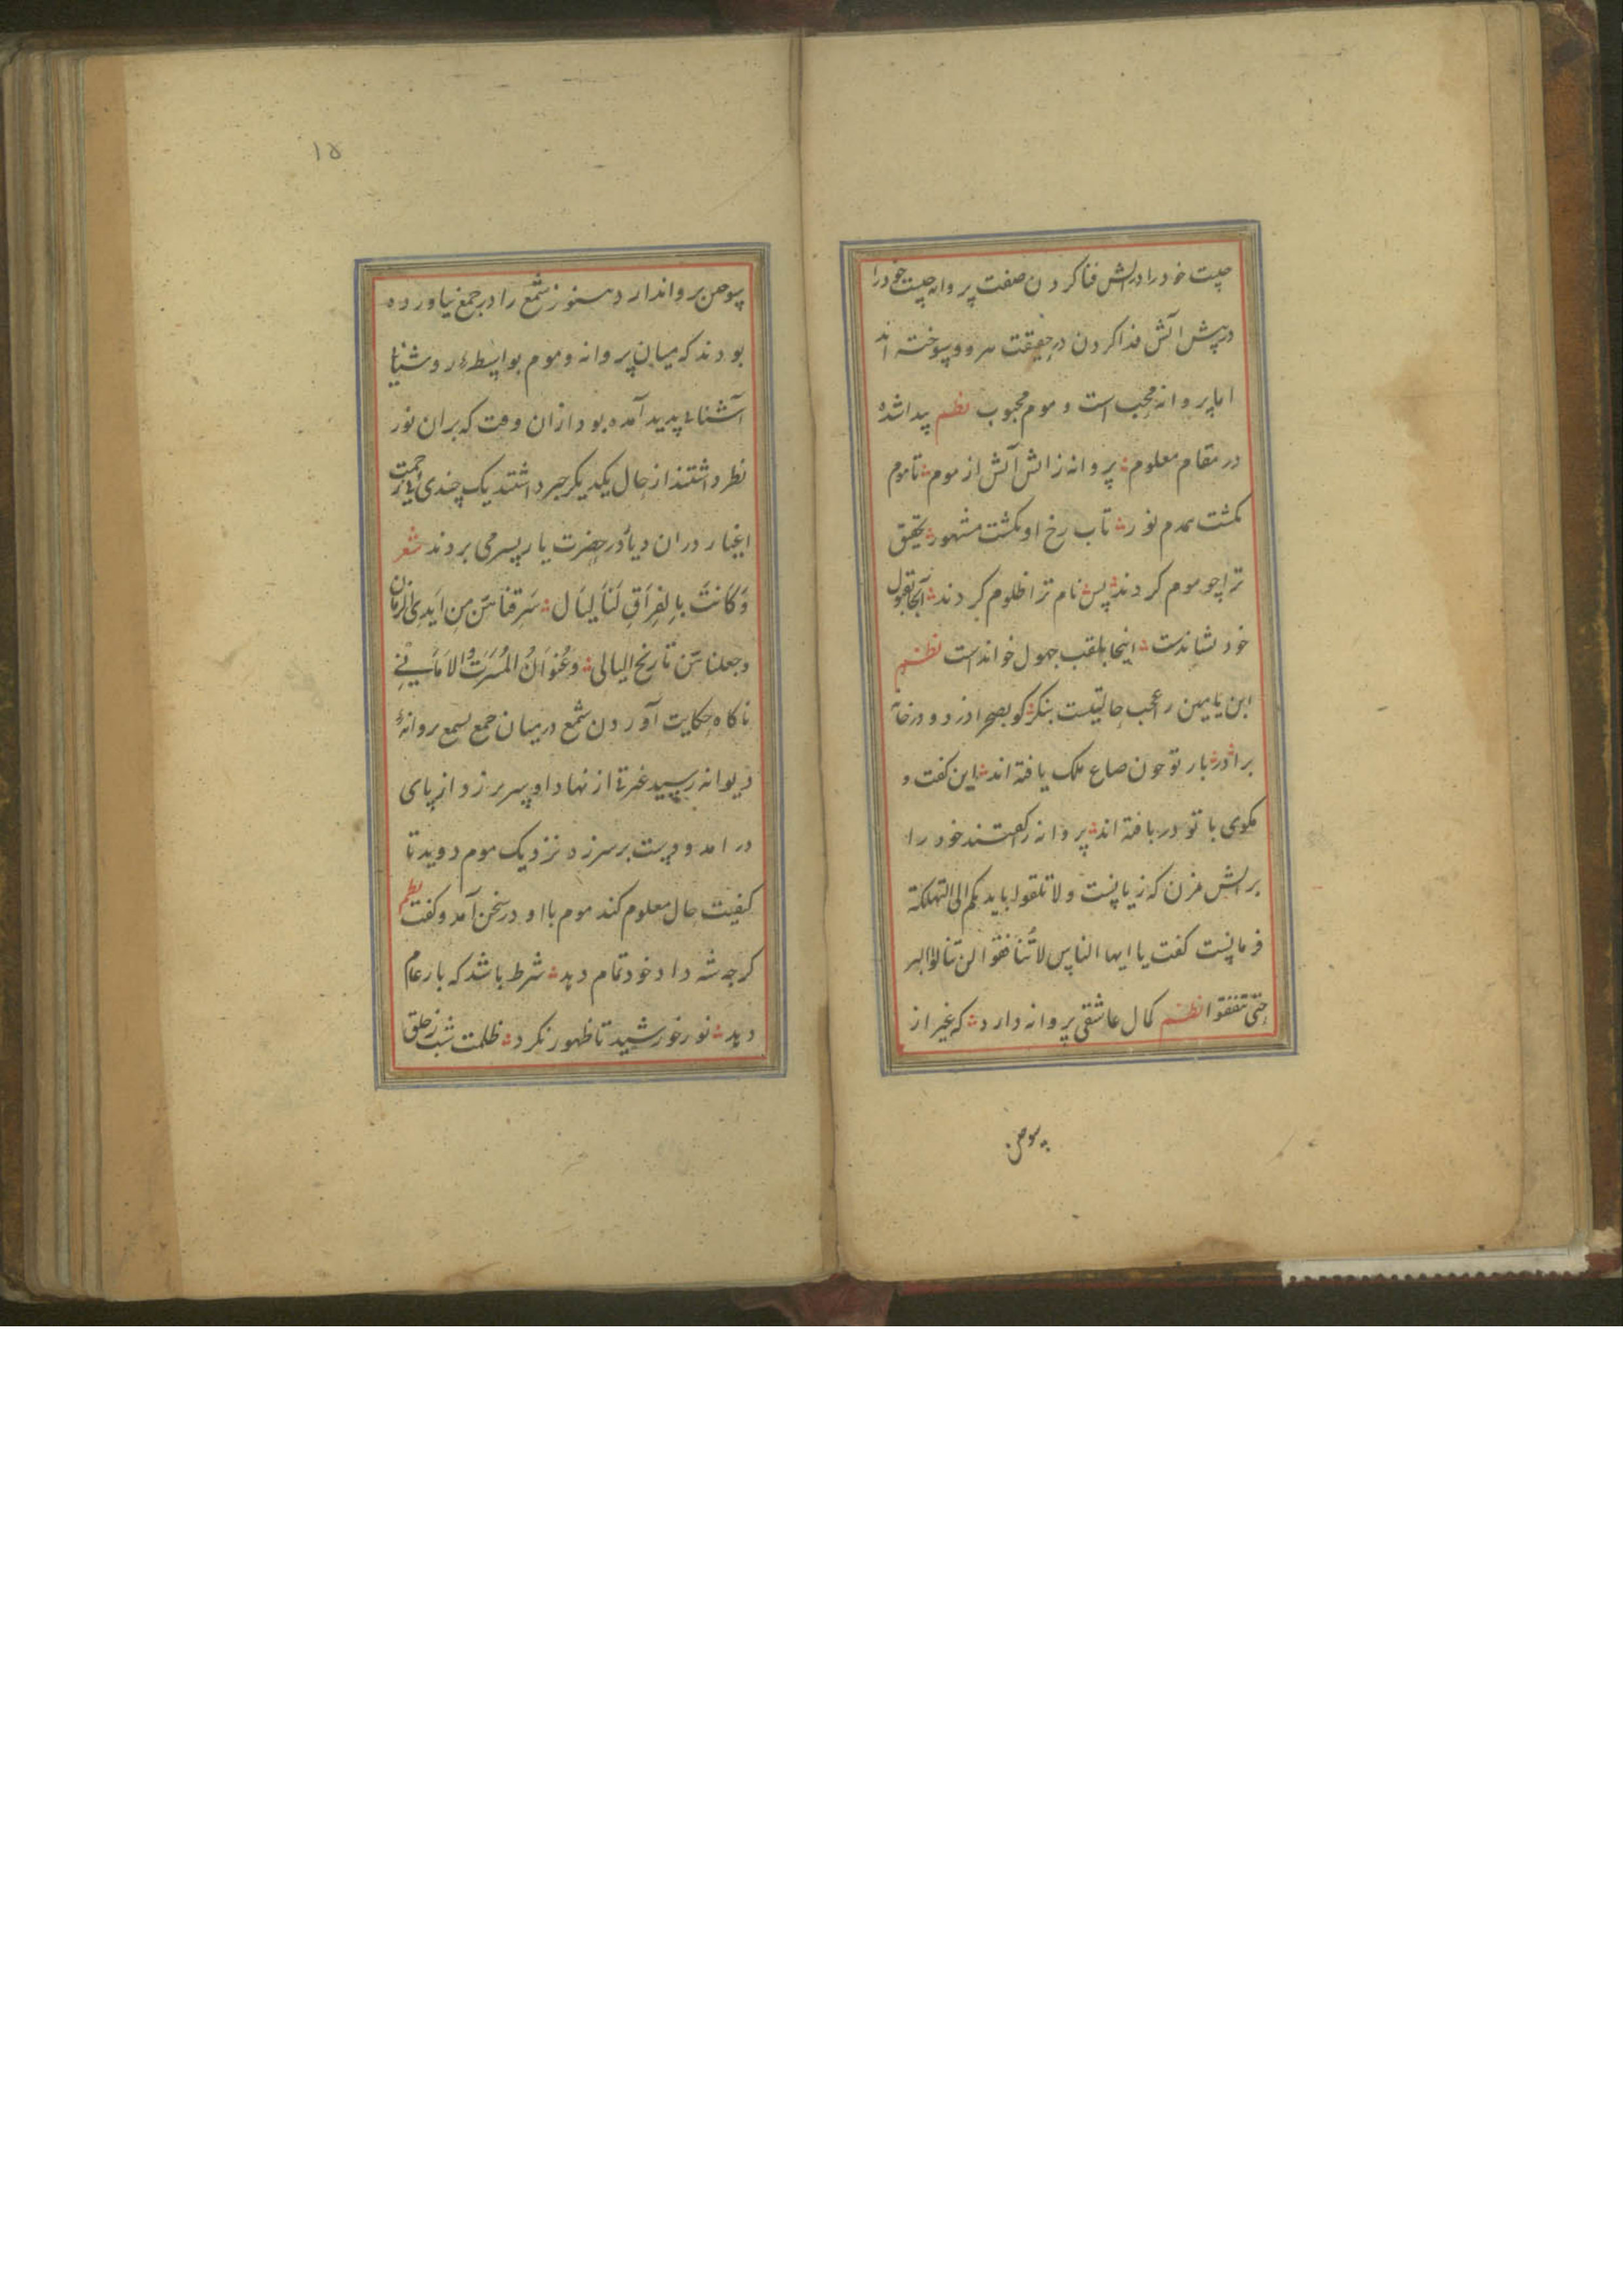 چیست خود را در آتش فنا کردن صفت پروانه چیست خود را
در پیش آتش فدا کردن در حقیقت هر دو سوخته اند
اما پروانه محب است و موم محبوب نظم پیدا شده
در مقام معلوم پروانه ز آتش آتش از موم تا موم
بگشت همدم نور تاب رخ او بگشت مشهور تحقیق
ترا چو موم کردند پس نام ترا ظلوم کردند آنجا بقبول
خود نشاندست اینجا بلقب جهول خواندست نظم
ابن یامین را عجب حالتیست بنگر کو بصحرا دزد و در خانه
برادر بار تو چون صاع ملک یافته اند این گفت و
مکوی با تو دریافته اند پروانه را گفتند خود را
بر آتش مزن که زیانست ولا تلقوا بایدیکم الی التهلکة
فرمانست گفت یا ایها الناس لا تنافقوا لن تنالوا البر
حتی تنفقوا نظم کمال عاشقی پروانه دارد که غیر از
سوختن
۱۵
سوختن پروا ندارد هنوز شمع را در جمع نیاورده
بودند که میان پروانه و موم بواسطهٔ روشنیا
آشنائی پدید آمده بود ازان وقت که بران نور
نظر داشتند از حال یکدیگر خبر داشتند یک چندی بی زحمت
اغیار دران دیار در حضرت یار بسر می بردند شعر
وَکَانَتْ بِالفِرَاقِ لَنَا لَیَال سَرقنا هن مِن اَیدِی الزمان
وجعلناهن تاریخ اللیالی وعُنوَانُ المَسَرَتُ والامَانِی
ناکاه حکایت آوردن شمع در میان جمع بسمع پروانهٔ
دیوانه رسید غیرتی از نهاد او سر برزد از پای
در آمد و دست بر سر زده نزدیک موم دوید تا
کیفیت حال معلوم کند موم با او در سخن آمد و گفت نظم
کرچه شه داد خود تمام دهد شرط باشد که بار عام
دهد نور خورشید تا ظهور نکرد ظلمت شب ز خلق